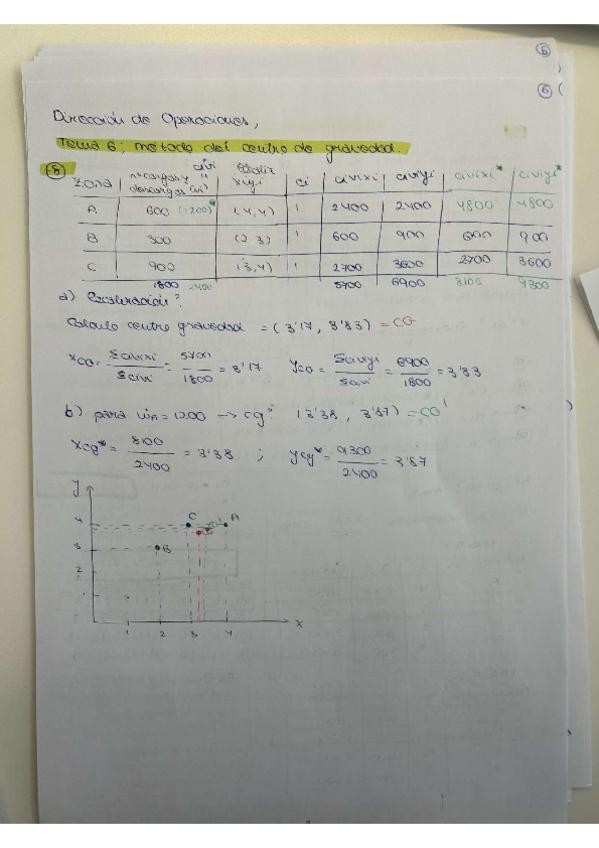 5
6
Dirección de Operaciones,
Tema 6: método del centro de gravedad.
8
civi Localiz
zona nº cargas y descargas "vi" xiyi ci civixi civiyi civixi* civiyi*
A 600 (1200)* (4,4) 1 2400 2400 4800 4800
B 300 (2,3) 1 600 900 600 900
C 900 (3,4) 1 2700 3600 2700 3600
1800 2400 5700 6900 8100 9300
a) Localización?
Calculo centro gravedad = (3'17, 3'83) = CG
xCG = Σcivixi / Σcivi = 5700 / 1800 = 3'17 yCG = Σciviyi / Σcivi = 6900 / 1800 = 3'83
b) para viA = 1200 → cg? (3'38, 3'87) = CG'
xcg* = 8100 / 2400 = 3'38 ; ycg* = 9300 / 2400 = 3'87
y
4 C A
3 B
2
1
1 2 3 4 x